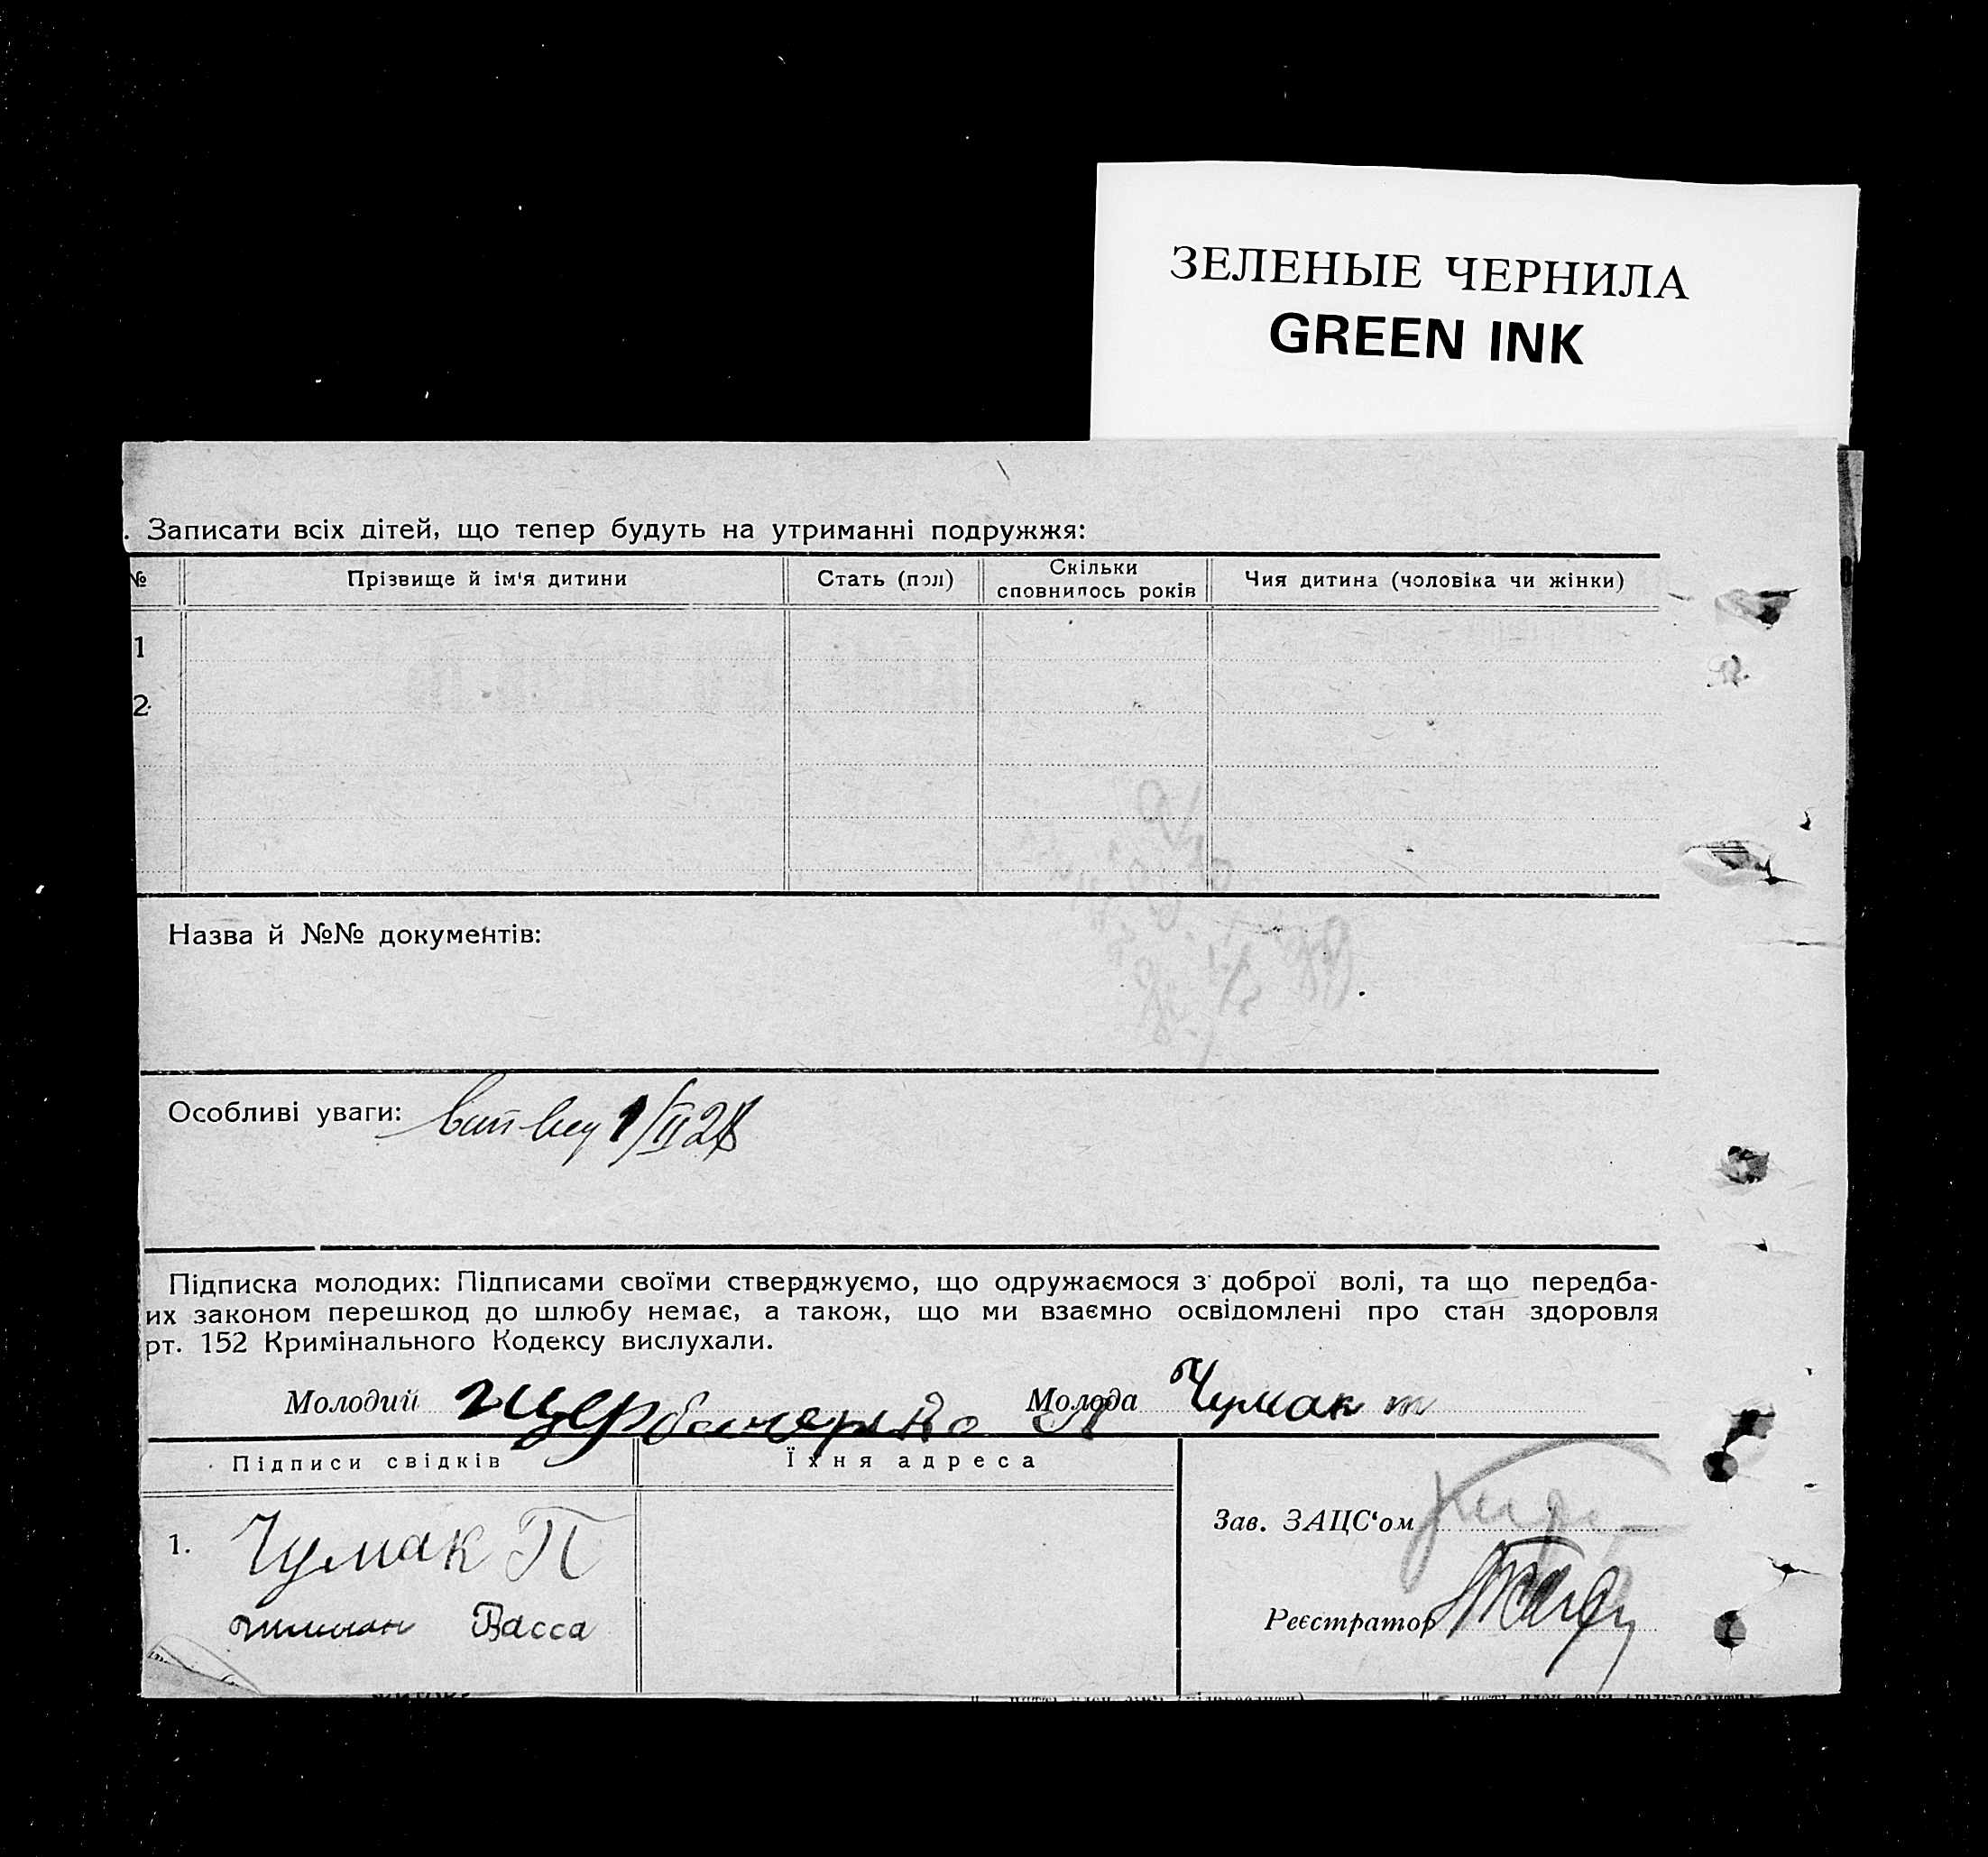 ЗЕЛЕНЫЕ ЧЕРНИЛА
GREEN INK
. Записати всіх дітей, що тепер будуть на утриманні подружжя:
№ Прізвище й ім'я дитини Стать (пол) Скільки сповнилось років Чия дитина (чоловіка чи жінки)
1
2
Назва й №№ документів:
Особливі уваги: 1/II 28
Підписка молодих: Підписами своїми стверджуємо, що одружаємося з доброї волі, та що передба-
их законом перешкод до шлюбу немає, а також, що ми взаємно освідомлені про стан здоровля
рт. 152 Кримінального Кодексу вислухали.
Молодий Молода Чумак
Підписи свідків Їхня адреса
1. Чумак П
Васса
Зав. ЗАЦС'ом
Реєстратор